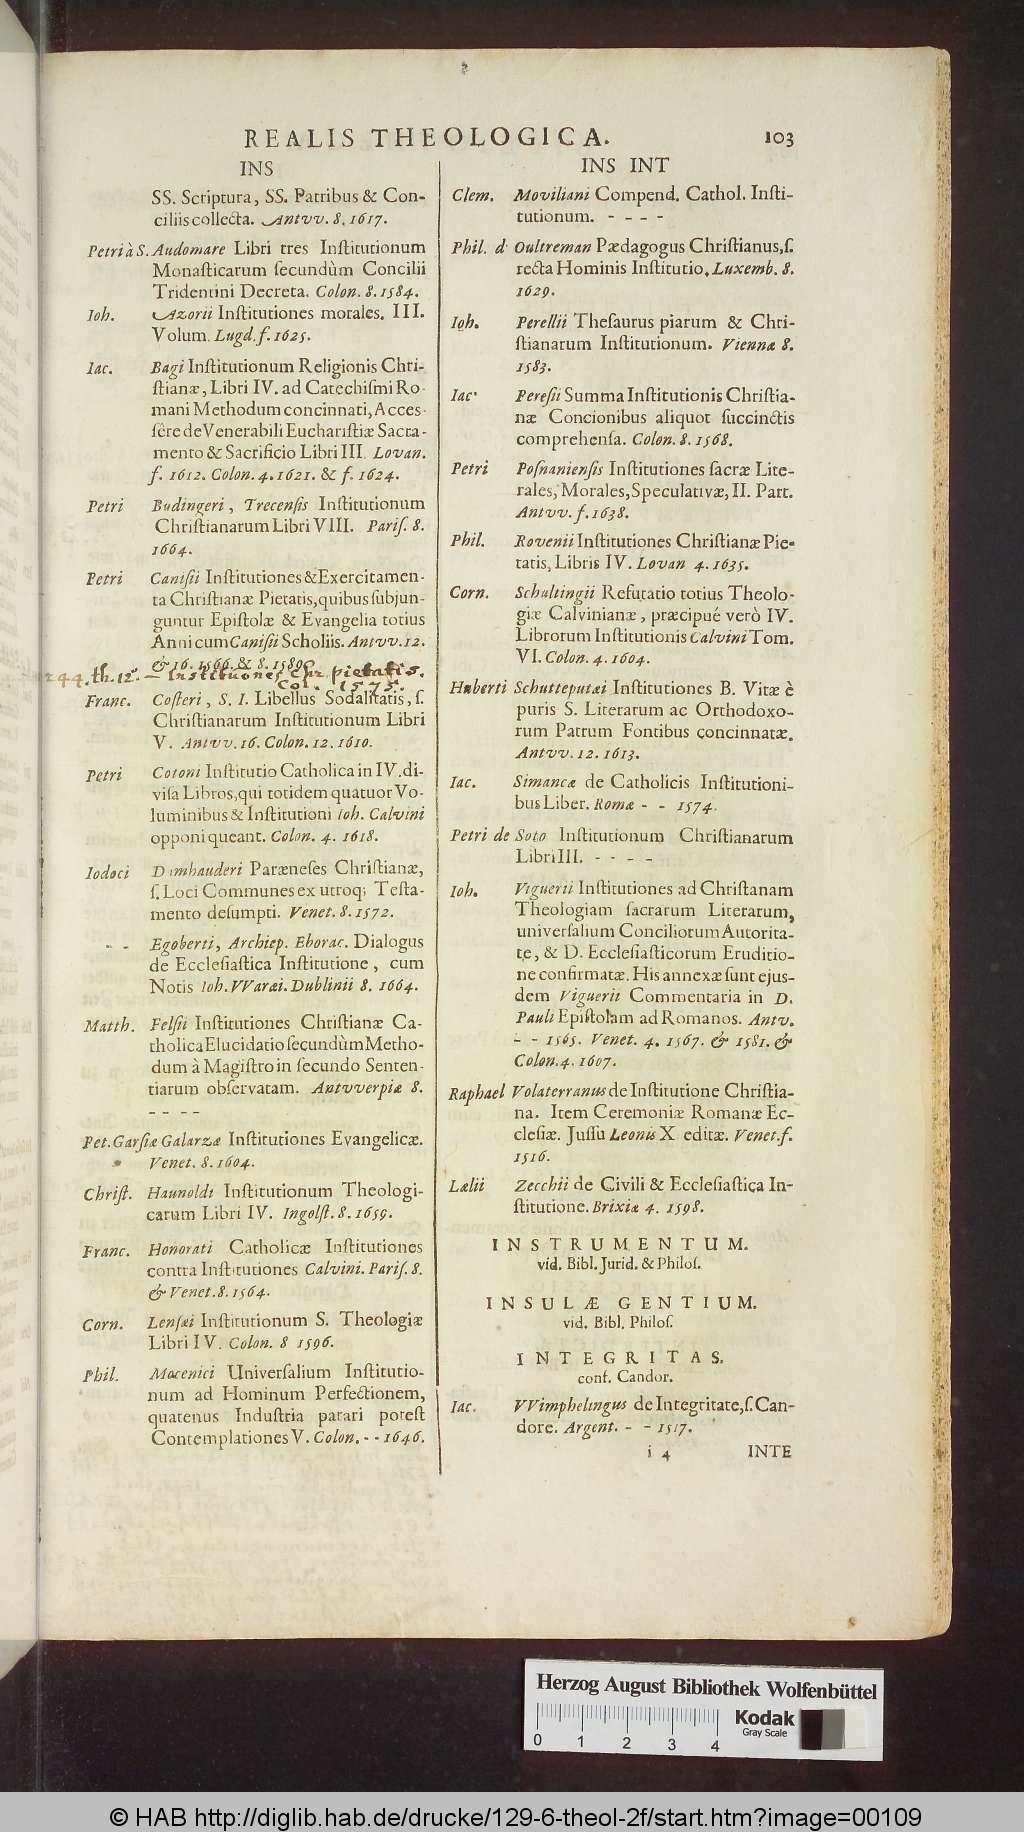 REALIS THEOLOGICA. 103
INS
SS. Scriptura, SS. Patribus & Con-
ciliis collecta. Antvv. 8. 1617.
Petri à S. Audomare Libri tres Institutionum
Monasticarum secundùm Concilii
Tridentini Decreta. Colon. 8. 1584.
Ioh. Azorii Institutiones morales. III.
Volum. Lugd. f. 1625.
Iac. Bagi Institutionum Religionis Chri-
stianæ, Libri IV. ad Catechismi Ro-
mani Methodum concinnati, Acces-
sêre de Venerabili Eucharistiæ Sacra-
mento & Sacrificio Libri III. Lovan.
f. 1612. Colon. 4. 1621. & f. 1624.
Petri Budingeri, Trecensis Institutionum
Christianarum Libri VIII. Paris. 8.
1664.
Petri Canisii Institutiones & Exercitamen-
ta Christianæ Pietatis, quibus subjun-
guntur Epistolæ & Evangelia totius
Anni cum Canisii Scholiis. Antvv. 12.
& 16. 1566. & 8. 1589.
244. th. 12. — Institutiones Chr. pietatis.
Col. 1575.
Franc. Costeri, S. I. Libellus Sodalitatis, s.
Christianarum Institutionum Libri
V. Antvv. 16. Colon. 12. 1610.
Petri Cotoni Institutio Catholica in IV. di-
visa Libros, qui totidem quatuor Vo-
luminibus & Institutioni Ioh. Calvini
opponi queant. Colon. 4. 1618.
Iodoci Damhauderi Paræneses Christianæ,
s. Loci Communes ex utroq; Testa-
mento desumpti. Venet. 8. 1572.
- - Egoberti, Archiep. Eborac. Dialogus
de Ecclesiastica Institutione, cum
Notis Ioh. VVaræi. Dublinii 8. 1664.
Matth. Felsii Institutiones Christianæ Ca-
tholica Elucidatio secundùm Metho-
dum à Magistro in secundo Senten-
tiarum observatam. Antvverpiæ 8.
- - - -
Pet. Garsiæ Galarza Institutiones Evangelicæ.
Venet. 8. 1604.
Christ. Haunoldi Institutionum Theologi-
carum Libri IV. Ingolst. 8. 1659.
Franc. Honorati Catholicæ Institutiones
contra Institutiones Calvini. Paris. 8.
& Venet. 8. 1564.
Corn. Lensæi Institutionum S. Theologiæ
Libri IV. Colon. 8 1596.
Phil. Macenici Universalium Institutio-
num ad Hominum Perfectionem,
quatenus Industria parari potest
Contemplationes V. Colon. - - 1646.
INS INT
Clem. Moviliani Compend. Cathol. Insti-
tutionum. - - - -
Phil. d' Oultreman Pædagogus Christianus, s.
recta Hominis Institutio. Luxemb. 8.
1629.
Ioh. Perellii Thesaurus piarum & Chri-
stianarum Institutionum. Viennæ 8.
1583.
Iac. Peresii Summa Institutionis Christia-
næ Concionibus aliquot succinctis
comprehensa. Colon. 8. 1568.
Petri Posnaniensis Institutiones sacræ Lite-
rales, Morales, Speculativæ, II. Part.
Antvv. f. 1638.
Phil. Rovenii Institutiones Christianæ Pie-
tatis, Libris IV. Lovan 4. 1635.
Corn. Schultingii Refutatio totius Theolo-
giæ Calvinianæ, præcipué verò IV.
Librorum Institutionis Calvini Tom.
VI. Colon. 4. 1604.
Huberti Schutteputæi Institutiones B. Vitæ è
puris S. Literarum ac Orthodoxo-
rum Patrum Fontibus concinnatæ.
Antvv. 12. 1613.
Iac. Simancæ de Catholicis Institutioni-
bus Liber. Romæ - - 1574.
Petri de Soto Institutionum Christianarum
Libri III. - - - -
Ioh. Viguerii Institutiones ad Christanam
Theologiam sacrarum Literarum,
universalium Conciliorum Autorita-
te, & D. Ecclesiasticorum Eruditio-
ne confirmatæ. His annexæ sunt ejus-
dem Viguerii Commentaria in D.
Pauli Epistolam ad Romanos. Antv.
- - 1565. Venet. 4. 1567. & 1581. &
Colon. 4. 1607.
Raphael Volaterranus de Institutione Christia-
na. Item Ceremoniæ Romanæ Ec-
clesiæ. Jussu Leonis X editæ. Venet. f.
1516.
Lælii Zecchii de Civili & Ecclesiastica In-
stitutione. Brixiæ 4. 1598.
INSTRUMENTUM.
vid. Bibl. Jurid. & Philos.
INSULÆ GENTIUM.
vid. Bibl. Philos.
INTEGRITAS.
conf. Candor.
Iac. VVimphelingus de Integritate, s. Can-
dore. Argent. - - 1517.
i 4 INTE
Herzog August Bibliothek Wolfenbüttel
0 1 2 3 4
Kodak
Gray Scale
© HAB http://diglib.hab.de/drucke/129-6-theol-2f/start.htm?image=00109